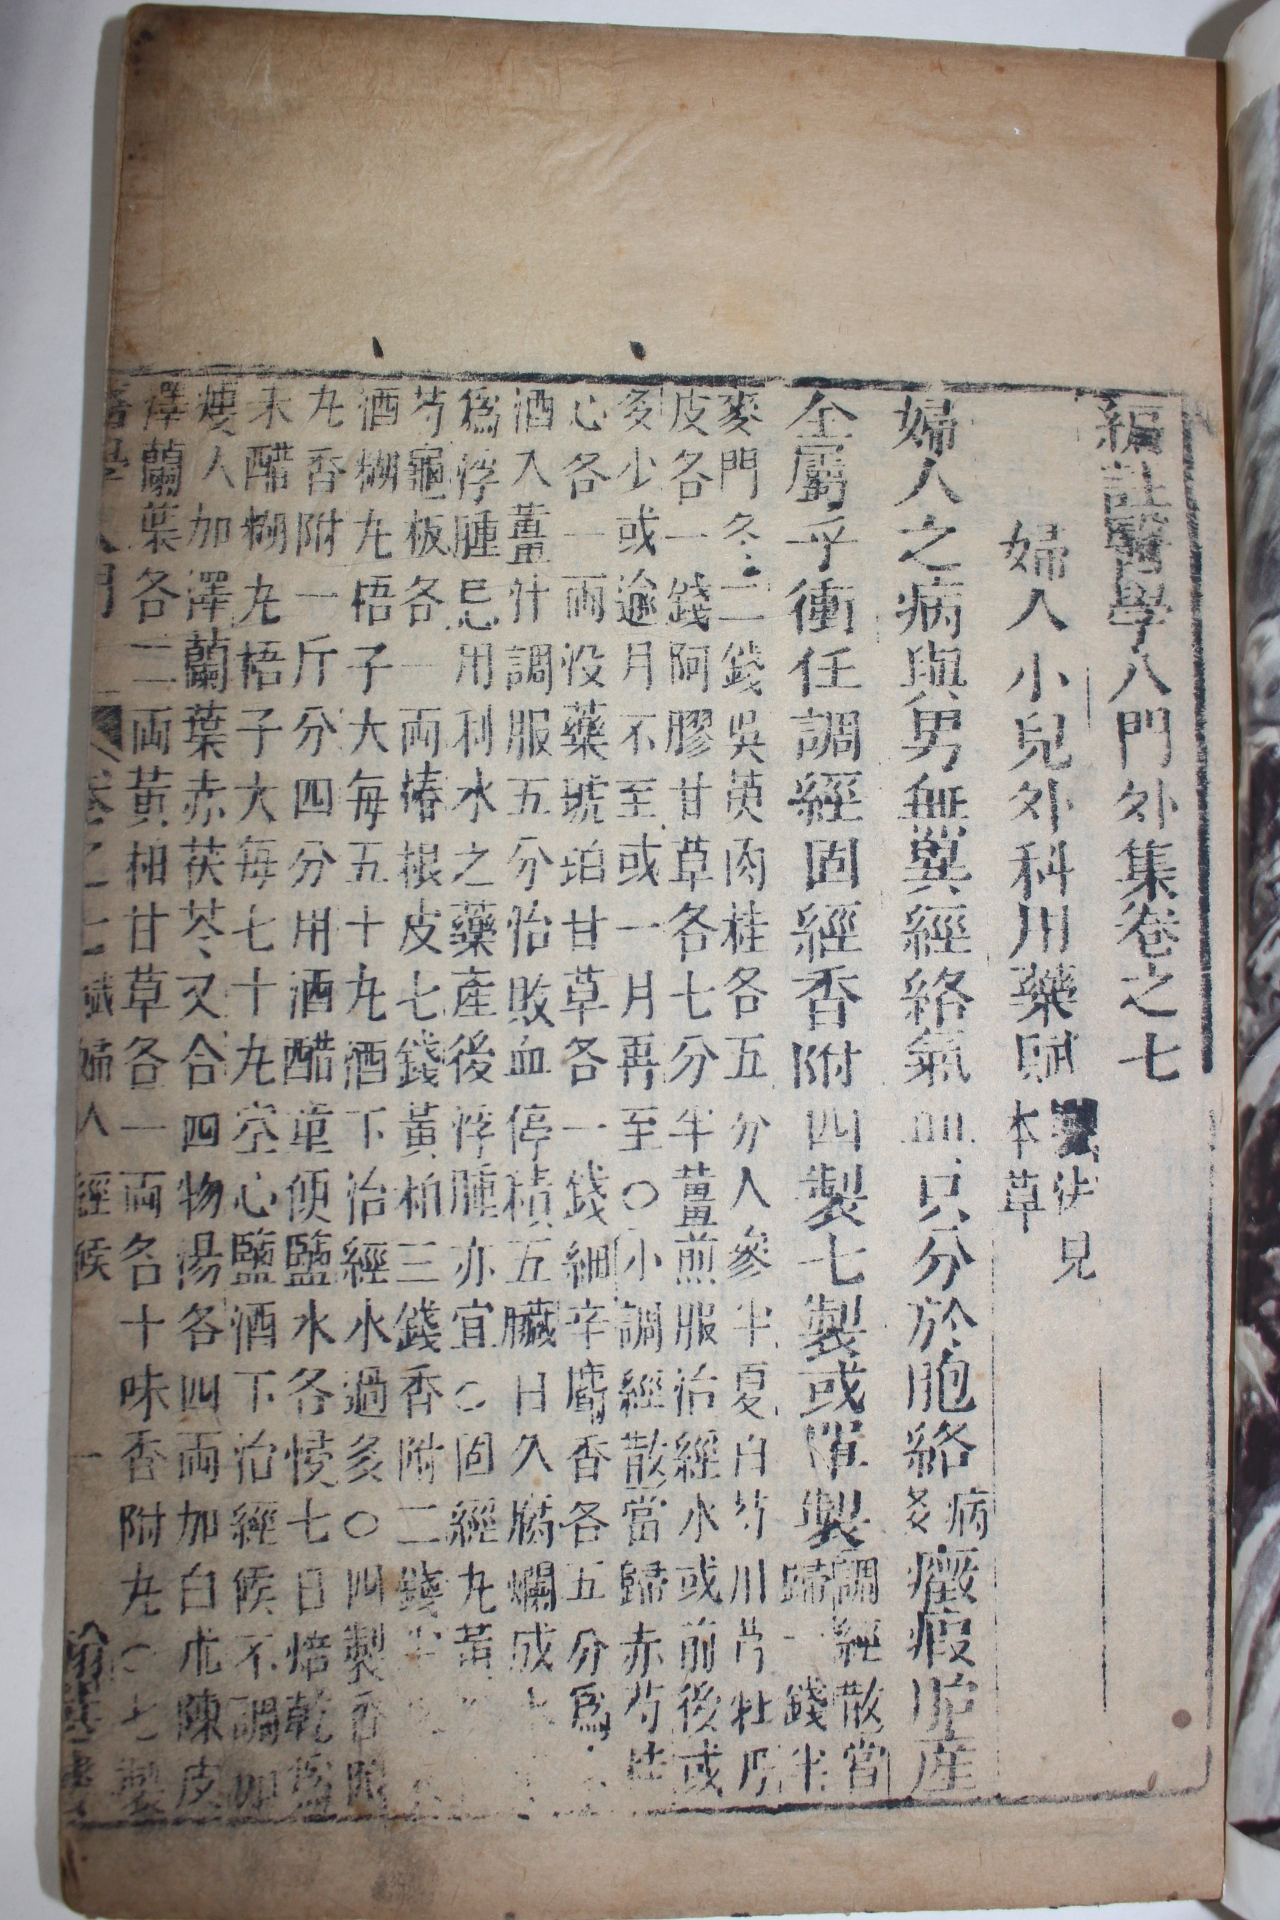 編註醫學入門外集卷之七
婦人小兒外科用藥賦
法見
本草
婦人之病與男無異經絡氣血只分於胞絡
病
多
癥瘕胎産
全屬乎衝任調經固經香附四製七製或單製
調經散當
歸一錢半
麥門冬二錢吳萸肉桂各五分人參半夏白芍川芎牡丹
皮各一錢阿膠甘草各七分半薑煎服治經水或前後或
多少或逾月不至或一月再至○小調經散當歸赤芍桂
心各一兩沒藥琥珀甘草各一錢細辛麝香各五分爲
酒入薑汁調服五分治敗血停積五臟日久腐爛成
爲浮腫忌用利水之藥產後浮腫亦宜○固經丸黃
芍龜板各一兩椿根皮七錢黃柏三錢香附二錢半
酒糊丸梧子大每五十丸酒下治經水過多○四製香附
丸香附一斤分四分用酒醋童便鹽水各浸七日焙乾爲
末醋糊丸梧子大每七十丸空心鹽酒下治經候不調如
瘦人加澤蘭葉赤茯苓又合四物湯各四兩加白朮陳皮
澤蘭葉各二兩黃柏甘草各一兩各十味香附丸○七製
醫學入門 卷之七 賦 婦人 經候 一